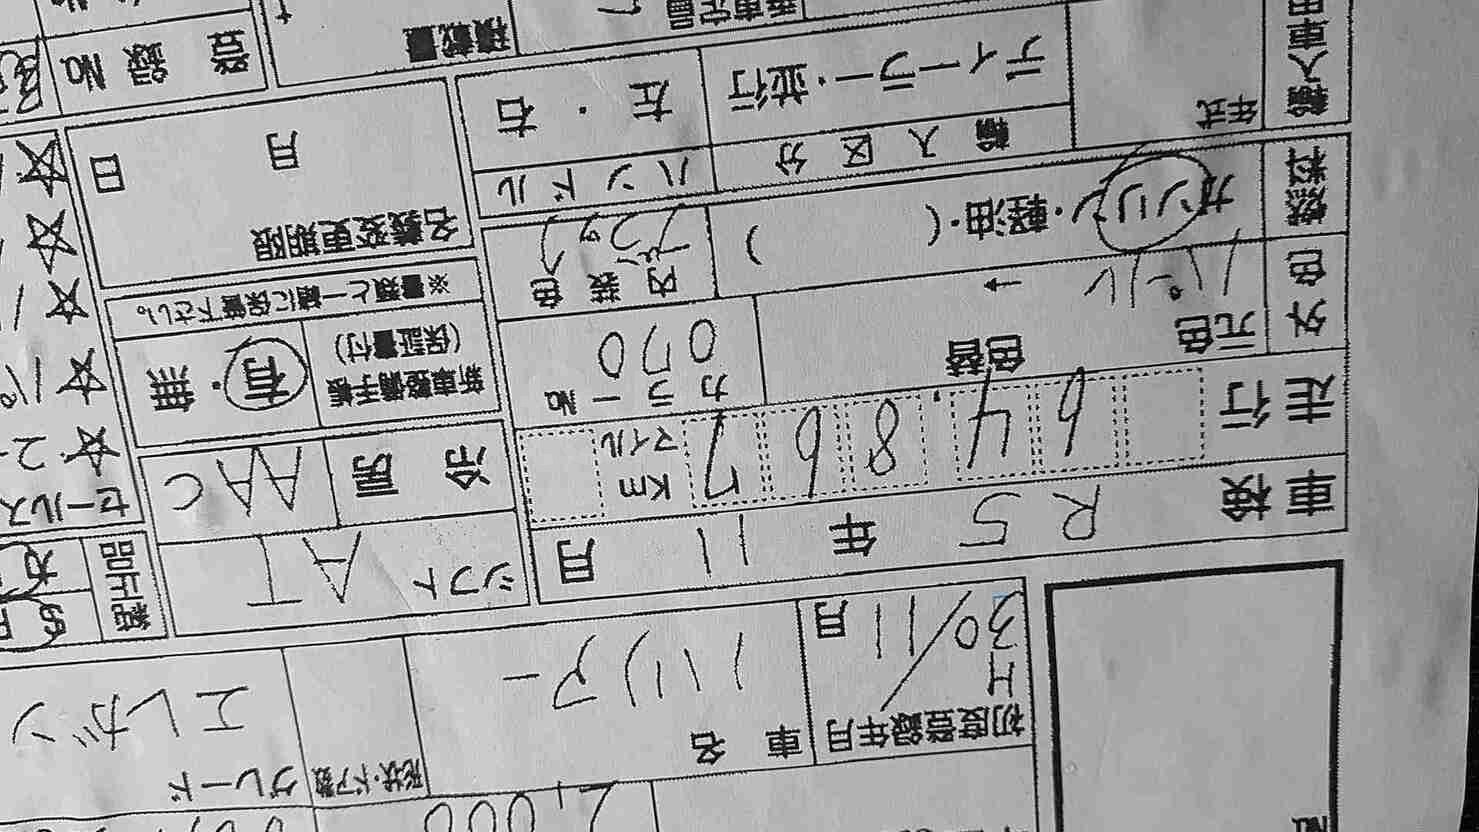 2,000
初度登録年月
H
30/11月
車名
ハリアー
形状・ドア数
グレード
エレガン
車検
R5年11月
シフト
AT
走行
94,897
Km
マイル
冷房
AAC
セールス
外色
元色
パール
→
色替
カラーNo
070
内装色
ブラック
新車整備手帳
(保証書付)
有・無
※書類と一緒に保管下さい。
燃料
ガソリン・軽油・( )
ハンドル
左・右
名義変更期限
月 日
輸入車
年式
輸入区分
ディーラー・並行
積載量
t
乗車定員
登録No